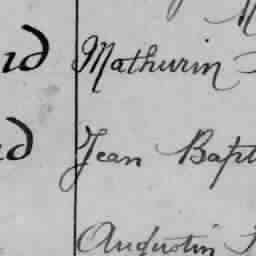 Mathurin
Jean Bapt
Augustin